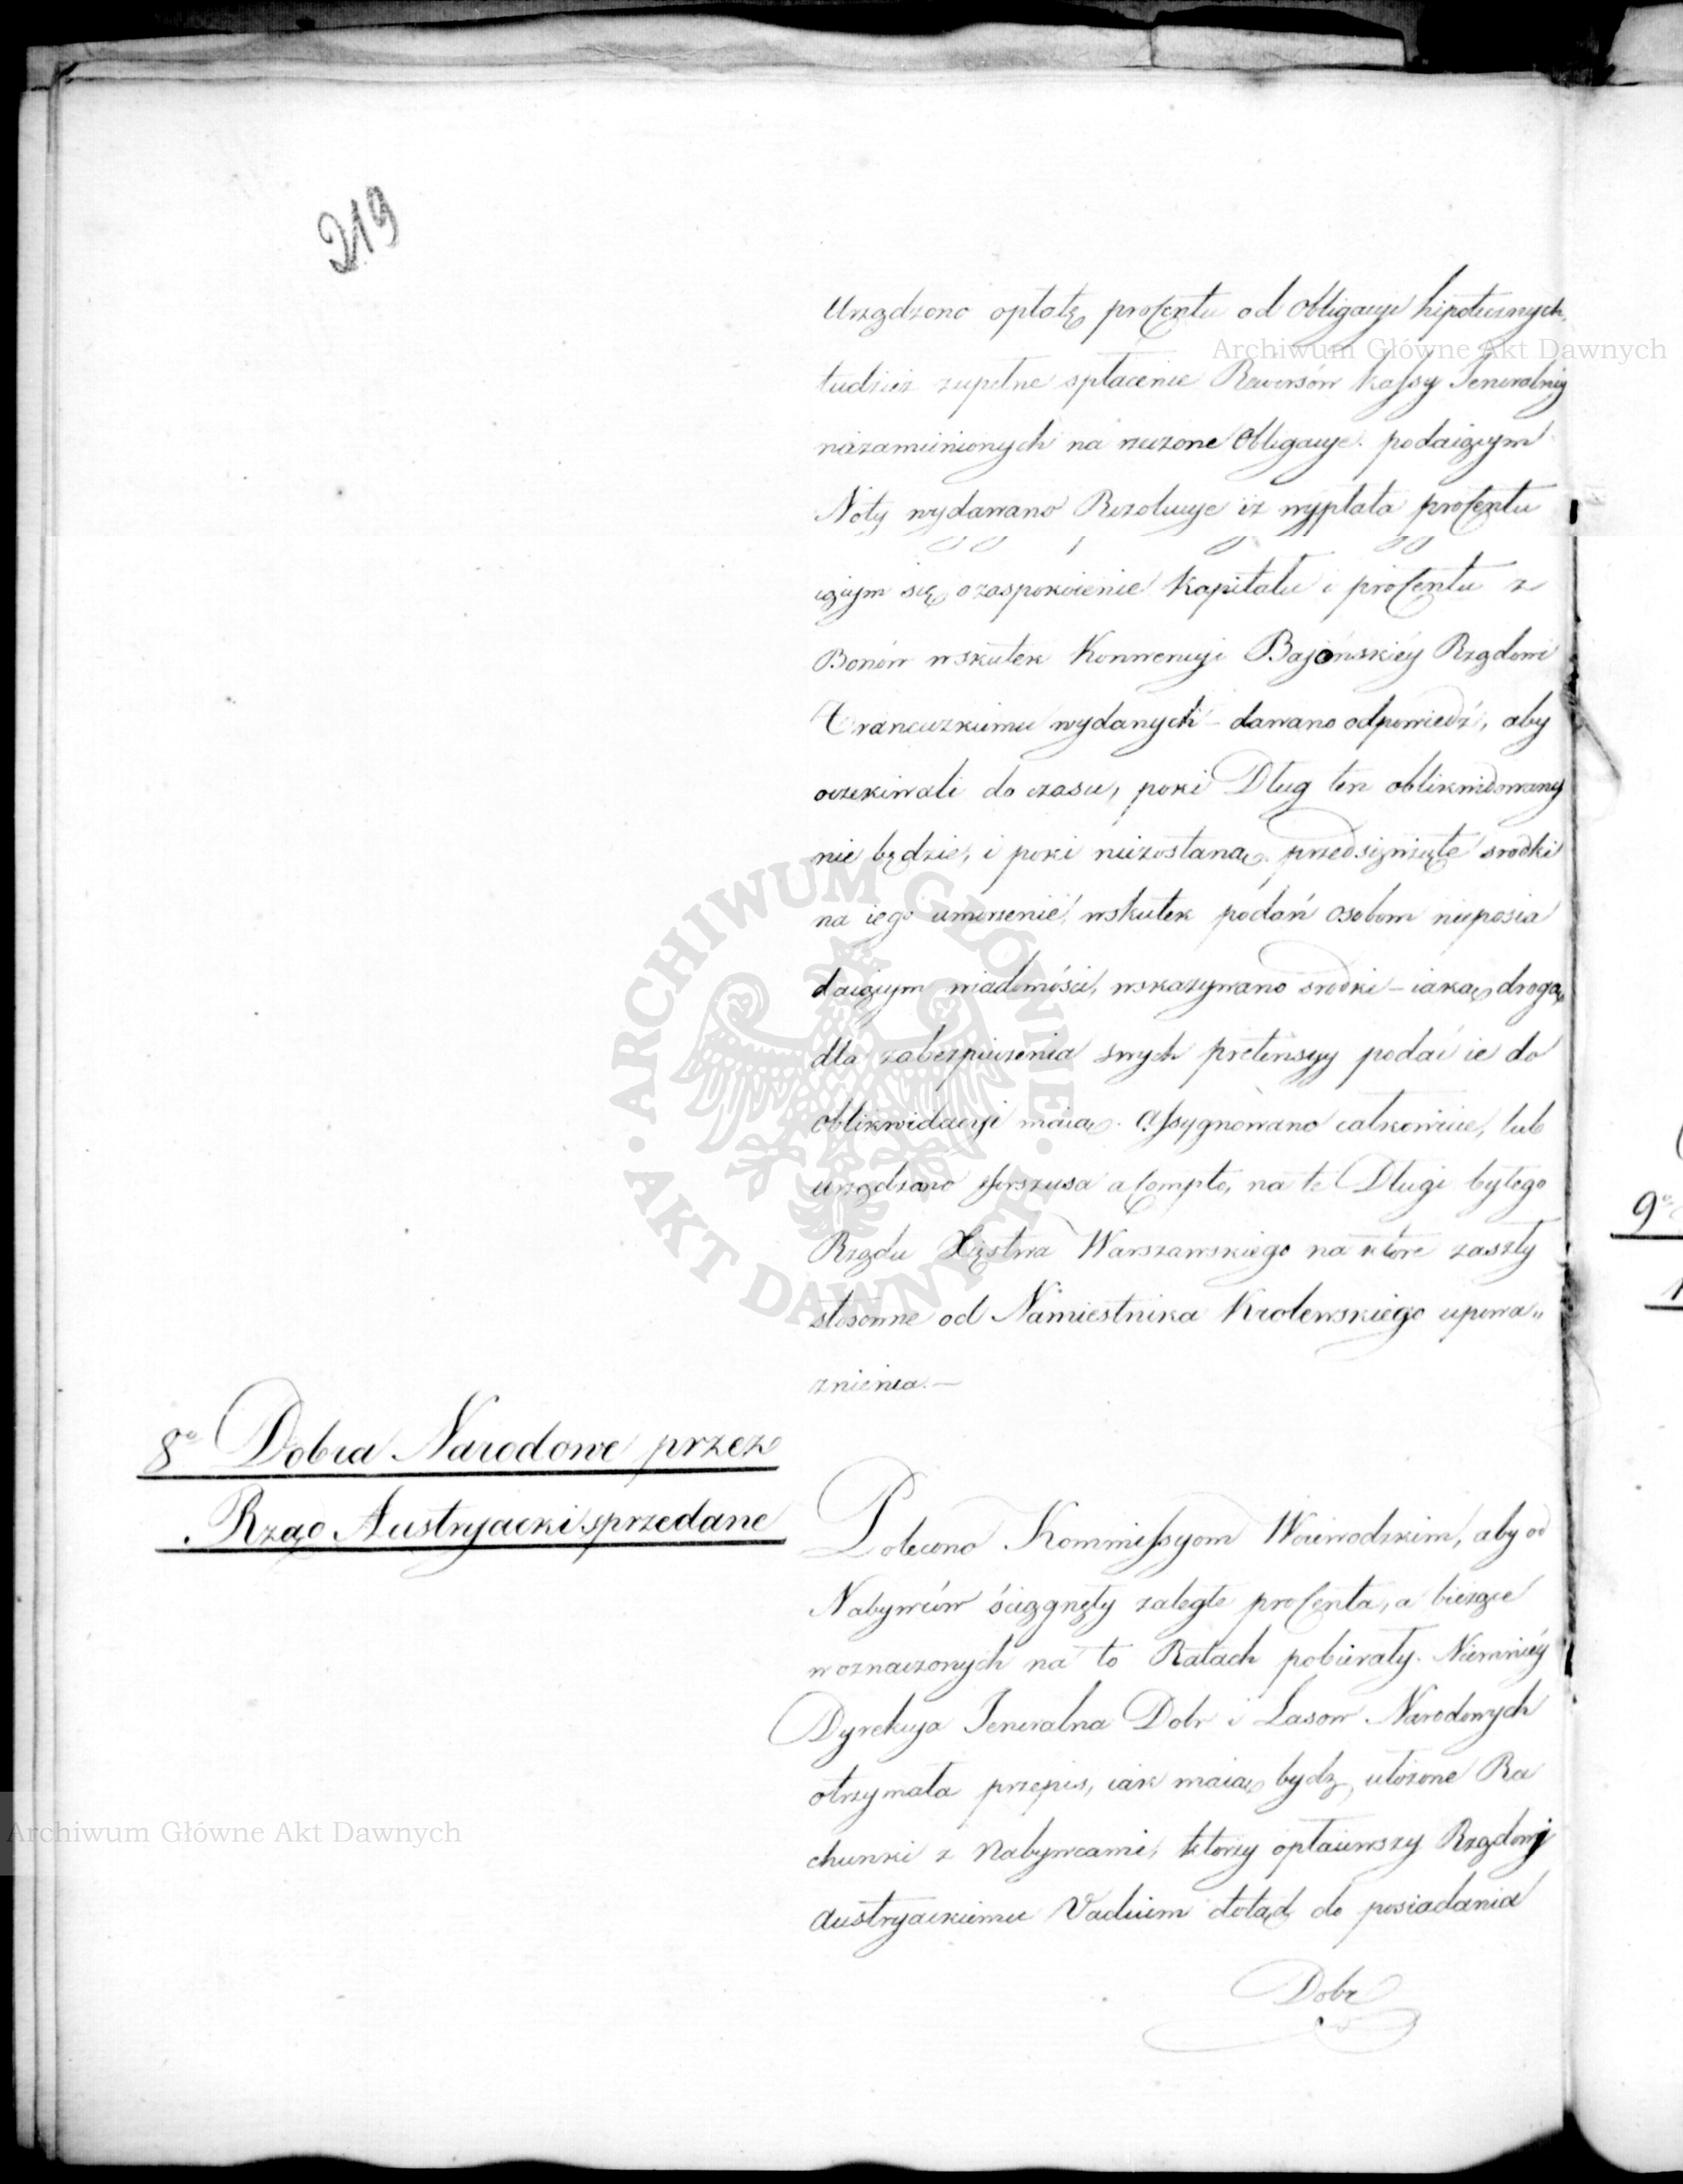 219
Urządzono opłatę procentu od Obligacyi hipotecznych,
tudzież zupełne spłacenie Rewersów Kassy Jeneralnéy
niezamienionych na rzeczone Obligacye. podaiącym
Noty wydawano Rezolucye iż wypłata procentu
iącym się o zaspokoienie Kapitału i procentu z
Bonów wskutek Konwencyi Bajońskiéy Rządowi
Francuzkiemu wydanych – dawano odpowiedź, aby
oczekiwali do czasu, poki Dług ten oblikwidowany
nie będzie, i poki niezostaną przedsięwzięte srodki
na iego umorzenie, wskutek podań osobom nieposia
daiącym wiadomości, wskazywano srodki – iaką drogą
dla zabezpieczenia swych pretensyy podać ie do
oblikwidacyi maią. Assygnowano całkowicie, lub
urządzano forszusa a Compto, na te Długi byłego
Rządu Xięstwa Warszawskiego na które zaszły
stosowne od Namiestnika Krolewskiego upowa„
znienia.—
8° Dobra Narodowe przez
Rząd Austryacki sprzedane
Polecono Kommissyom Woiewodzkim, aby od
Nabywców ściągnęły zaległe procenta, a bieżące
w oznaczonych na to Ratach pobierały. Niemniéy
Dyrekcya Jeneralna Dobr i Lasow Narodowych
otrzymała przepis, iak maią bydź ułożone Ra
chunki z Nabywcami, którzy opłaciwszy Rządowi
Austryackiemu Vadium dotąd do posiadania
Dobr
9°
Archiwum Główne Akt Dawnych
ARCHIWUM GŁÓWNE AKT DAWNYCH
Archiwum Główne Akt Dawnych